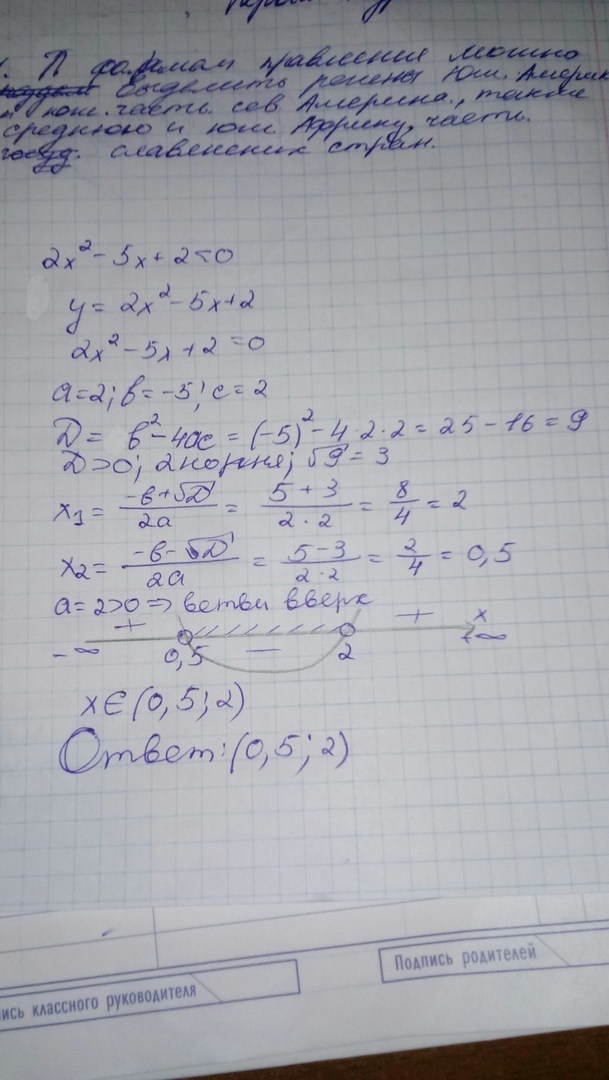 1. П формам правления можно
выделить регены Юж. Америк
и юж. часть. сев Америка., также
среднюю и юж. Африку, части.
госуд. славенских стран.
2x² - 5x + 2 < 0
y = 2x² - 5x + 2
2x² - 5x + 2 = 0
a = 2; b = -5; c = 2
D = b² - 4ac = (-5)² - 4·2·2 = 25 - 16 = 9
D > 0; 2 корня; √9 = 3
x₁ = (-b + √D)/(2a) = (5 + 3)/(2·2) = 8/4 = 2
x₂ = (-b - √D)/(2a) = (5 - 3)/(2·2) = 2/4 = 0,5
a = 2 > 0 => ветви вверх
+ + x
-∞ 0,5 — 2 +∞
x ∈ (0,5; 2)
Ответ: (0,5; 2)
Подпись родителей
ись классного руководителя